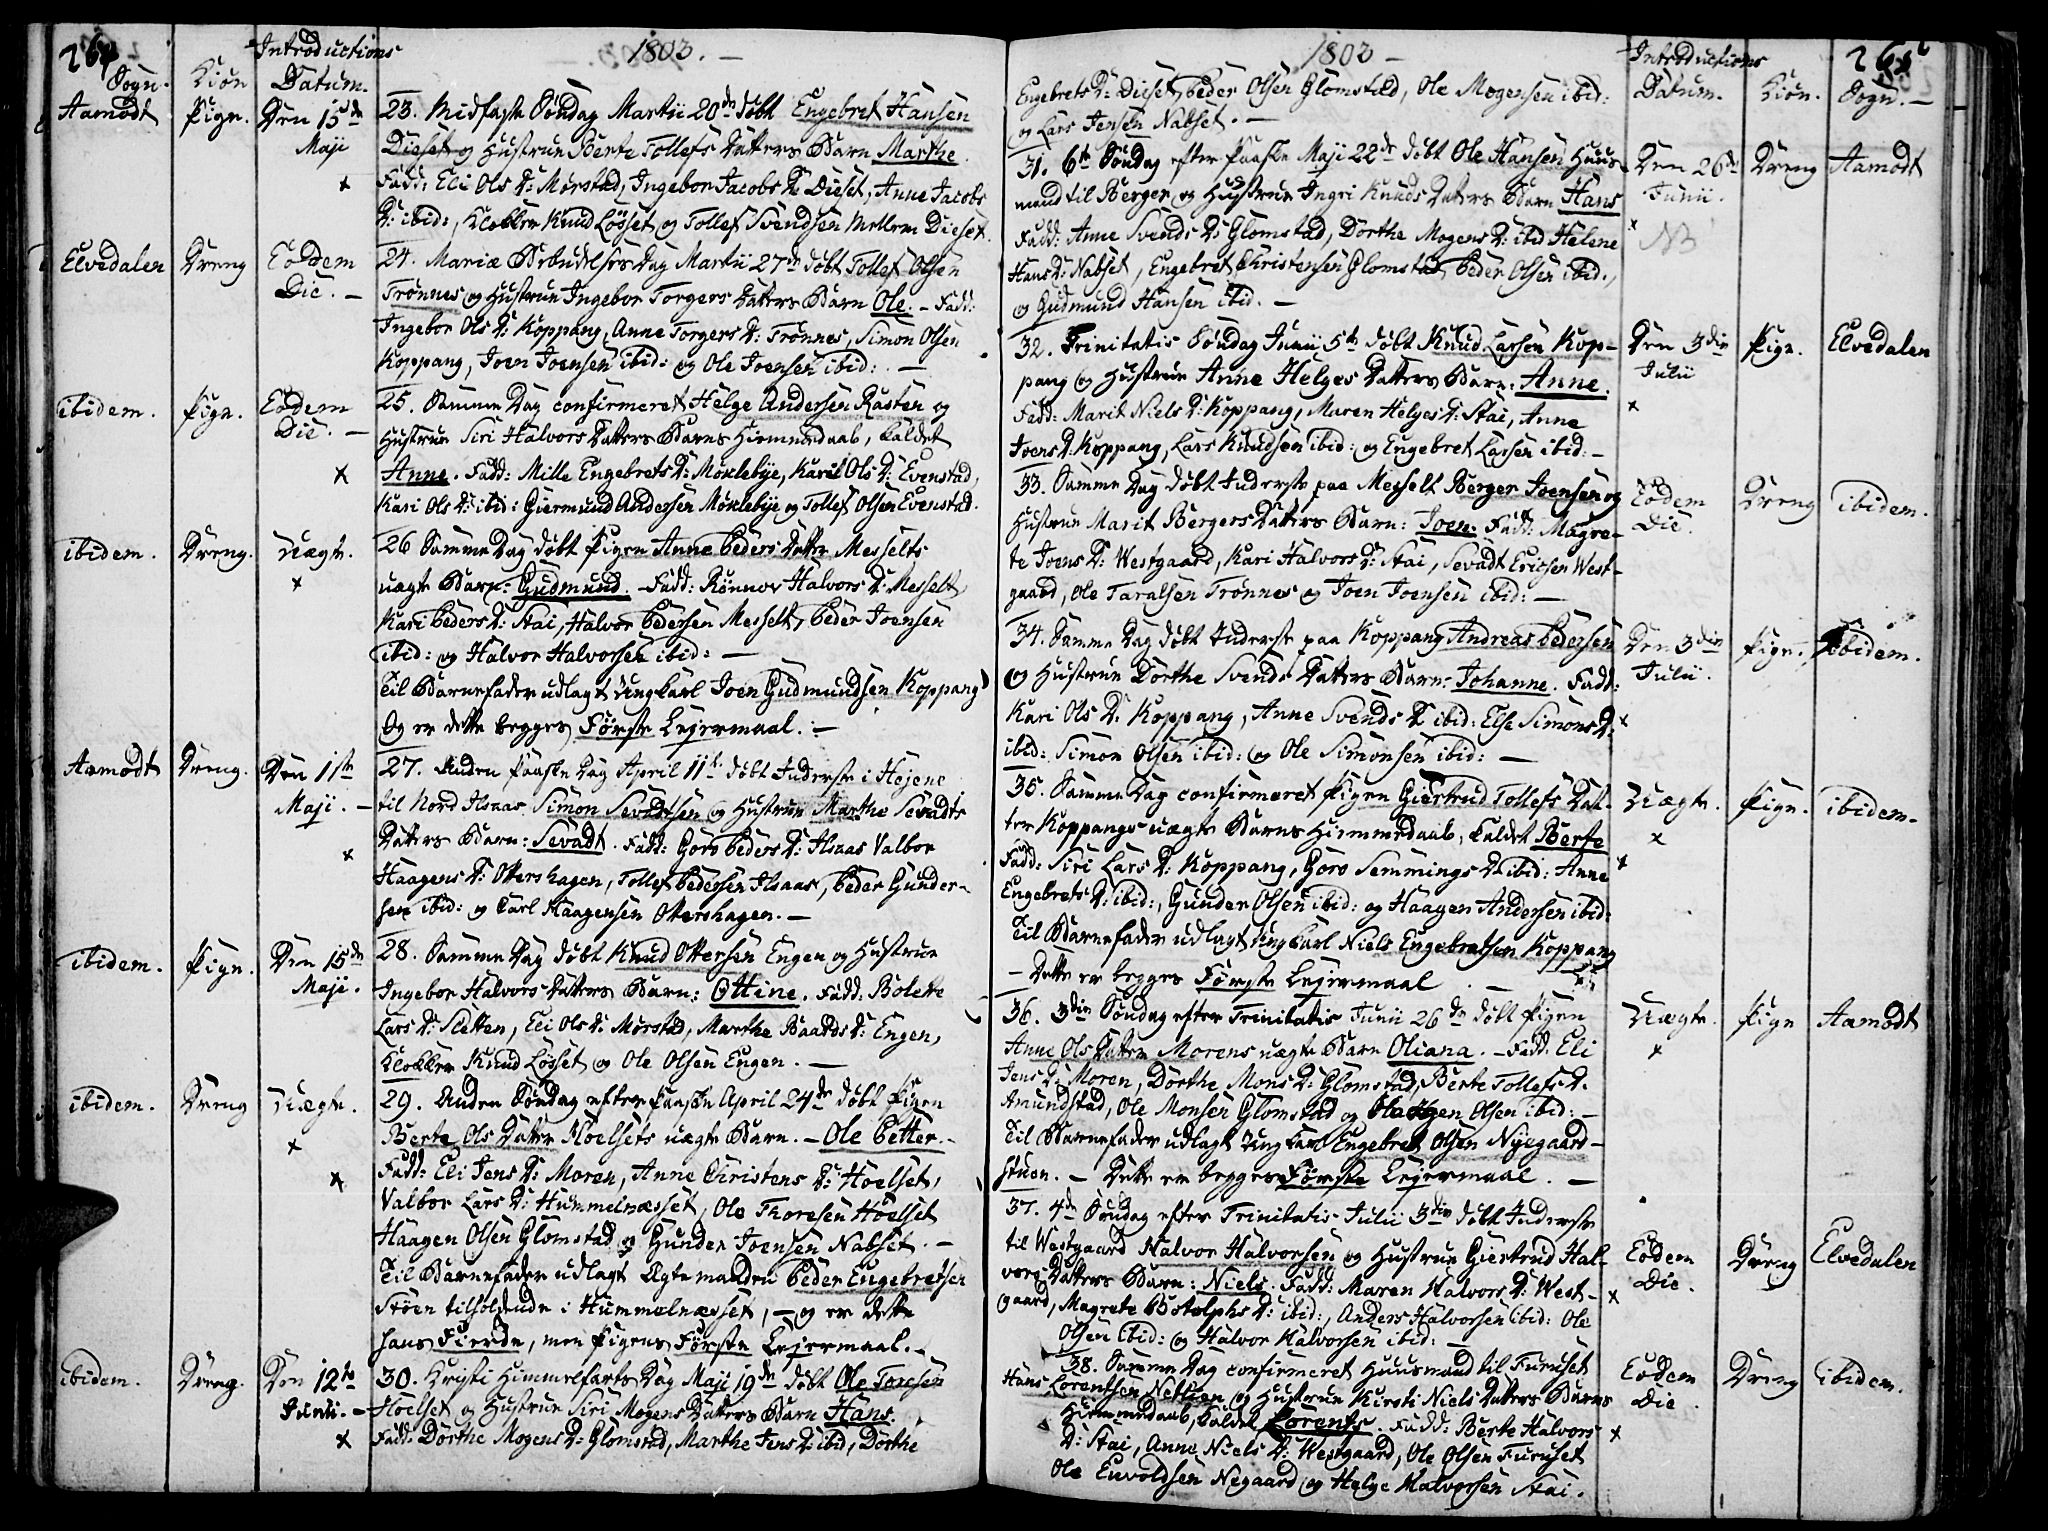 264
Sogn. Kiøn Introductions Datum. 1803. —
Aamodt Pige. Den 15de Maji
23. Midfaste Søndag Martii 20de døbt Engebret Hansen
Dieset og Hustrue Berte Tollefs Datters Barn Marthe.
Fadd: Eli Ols D: Mørstad, Ingebor Jacobs D: Dieset, Anne Jacobs
D: ibid:, Klokker Knud Løsset og Tollef Svendsen Mellem Dieset.
Elvedalen Dreng Eodem Die. —
24. Mariæ Bebudelses Dag Martii 27de døbt Tollef Olsen
Trønnes og Hustrue Ingebor Torgers Datters Barn Ole. — Fadd:
Ingebor Ols D: Koppang, Anne Torgers D: Trønnes, Simon Olsen
Koppang, Joen Joensen ibid: og Ole Joensen ibid: . —
ibidem. Pige. Eodem Die. —
25. Samme Dag confirmeret Helge Andersen Rasten og
Hustrue Siri Halvors Datters Barns Hiemmedaab, kaldet
Anne. Fadd: Mille Engebrets D: Møklebye, Kari Ols D: Evenstad,
Kari Ols D: ibid: Giermund Andersen Møklebye og Tollef Olsen Evenstad.
ibidem. Dreng. Uægte.
26 Samme Dag døbt Pigen Anne Peders Datter Messelts
uægte Barn: Gudmund. — Fadd: Rønnov Halvors D: Messelt
Kari Peders D: Stai, Halvor Pedersen Messelt, Peder Joensen
ibid: og Halvor Halvorsen ibid: —
Til Barnefader udlagt Ungkarl Joen Gudmundsen Koppang
Og er dette begges Første Lejermaal. —
Aamodt Dreng. Den 11te Maji. —
27. Anden Paaske Dag April 11te døbt Inderste i Hejene
til Nord Ilsaas Simon Sevadtsen og Hustrue Marthe Sevadts
Datters Barn: Sevadt. Fadd: Goro Peders D: Ilsaas Valbor
Haagens D: Ottershagen, Tollef Pedersen Ilsaas, Peder Gunder-
sen ibid: og Carl Haagensen Ottershagen. —
ibidem. Pige. Den 15de Maji.
28. Samme Dag døbt Knud Ottersen Engen og Hustrue
Ingebor Halvors Datters Barn: Ottine. Fadd: Bolette
Lars D: Sletten, Eli Ols D: Mørstad, Marthe Baards D: Engen,
Klokker Knud Løsset og Ole Olsen Engen. —
ibidem. Dreng Uægte.
29. Anden Søndag efter Paaske April 24de døbt Pigen
Berte Ols Datter Hoelsets uægte Barn. — Ole Petter. —
Fadd: Eli Jens D: Moren, Anne Christens D: Hoelset,
Valbor Lars D: Hummelnæsset, Ole Thoresen Hoelset
Haagen Olsen Glomstad og Gunder Joensen Nabset. —
Til Barnefader udlagt Ægtemanden Peder Engebretsen
Støen tilholdende i Hummelnæsset, — og er dette
hans Fierde, men Pigens Første Lejermaal. —
ibidem. Dreng. Den 12te Junii. —
30. Kristi Himmelfarts Dag Maji 19de døbt Ole Toresen
Hoelset og Hustrue Siri Mogens Datters Barn Hans.
Fadd: Dorthe Mogens D: Glomstad, Marthe Jens D: ibid, Dorthe
1803 — Introductions Datum. Kiøn. Sogn. — 265
Engebrets D: Dieset, Peder Olsen Glomstad, Ole Mogensen ibid:
og Lars Jensen Nabset. —
31. 6te Søndag efter Paaske Maji 22de døbt Ole Hansen Huus-
mand til Berger og Hustrue Ingri Knuds Datters Barn Hans
Fadd: Anne Svends D: Glomstad, Dorthe Mogens D: ibid Helene
Hans D: Nabset, Engebret Christensen Glomstad Peder Olsen ibid.,
og Gudmund Hansen ibid. —
Den 26de Junii. Dreng Aamodt
NB
32. Trinitatis Søndag Junii 5te døbt Knud Larsen Kop-
pang og Hustrue Anne Helges Datters Barn: Anne.
Fadd: Marit Niels D: Koppang, Maren Helges D: Stai, Anne
Joens D: Koppang, Lars Knudsen ibid: og Engebret Larsen ibid: —
Den 3die Julii Pige. Elvedalen
33. Samme Dag døbt Inderste paa Messelt Berger Joensen og
Hustrue Marit Bergers Datters Barn: Joen. Fadd: Magre-
te Joens D: Westgaard, Kari Halvors D: Stai, Sevadt Ericsen West-
gaard, Ole Taralsen Trønnes og Joen Joensen ibid: —
Eodem Die. Dreng ibidem.
34. Samme Dag døbt Inderste paa Koppang Andreas Pedersen
og Hustrue Dorthe Svends Datters Barn: Johanne. Fadd:
Kari Ols D: Koppang, Anne Svends D: ibid: Else Simons D:
ibid: Simon Olsen ibid: og Ole Simonsen ibid: —
Den 3die Julii. Pige. ibidem.
35. Samme Dag confirmeret Pigen Giertrud Tollefs Dat-
ter Koppangs uægte Barns Hiemmedaab, kaldet Berte
Fadd: Siri Lars D: Koppang, Goro Semmings D: ibid: Anne
Engebrets D: ibid:, Gunder Olsen ibid: og Haagen Andersen ibid:
Til Barnefader udlagt Ungkarl Niels Engebretsen Koppang
— Dette er begges Første Lejermaal . —
Uægte. Pige. ibidem.
36. 3die Søndag efter Trinitatis Junii 26de døbt Pigen
Anne Ols Datter Morens uægte Barn Oliana. — Fadd: Eli
Jens D: Moren, Dorthe Mons D: Glomstad, Berte Tollefs D:
Amundstad, Ole Monsen Glomstad og Olsen ibid: —
Til Barnefader udlagt Ungkarl Engebret Olsen Nyegaard-
stuen. — Dette er begges Første Lejermaal. —
Uægte. Pige Aamodt
37. 4de Søndag efter Trinitatis Julii 3die døbt Inderste
til Westgaard Halvor Halvorsen og Hustrue Giertrud Hal-
vors Datters Barn: Niels. Fadd: Maren Halvors D: West-
gaard, Magrete Botolphs D: ibid:, Anders Halvorsen ibid: Ole
Olsen ibid: og Halvor Halvorsen ibid: —
Eodem Die. Dreng Elvedalen
38. Samme Dag confirmeret Huusmand til Furuset
Hans Lorentsen Nettien og Hustrue Kirsti Niels Datters Barns
Hiemmedaab, kaldet Lorents. Fadd: Berte Halvors
D: Stai, Anne Niels D: Westgaard, Ole Olsen Furuset
Ole Envoldsen Negaard og Helge Halvorsen Stai.
Eodem Die. Dreng ibidem.